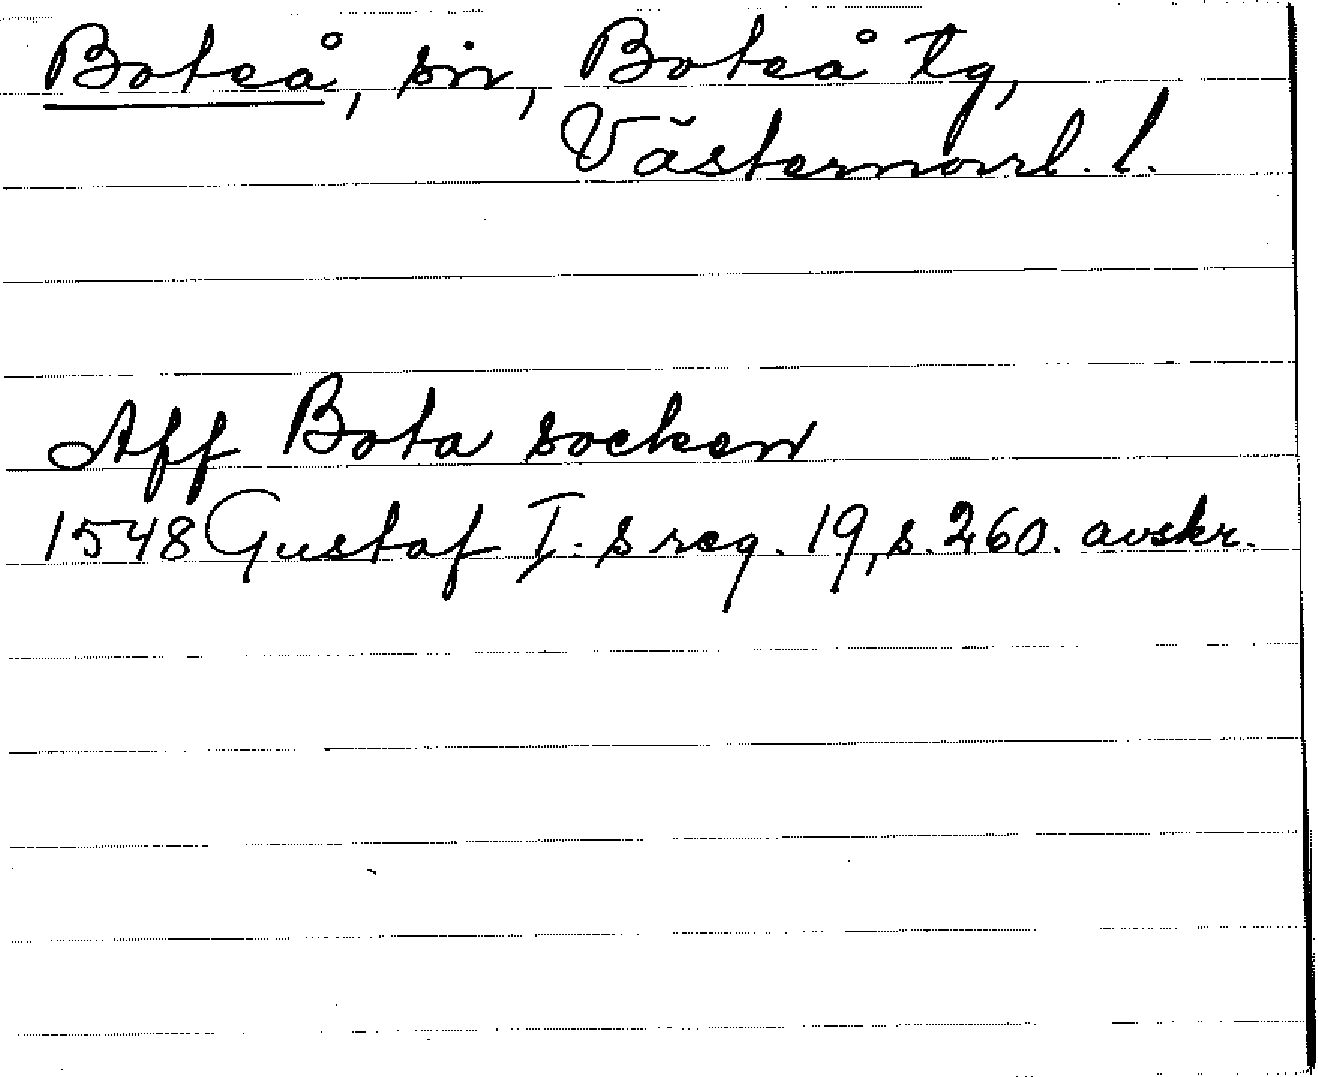 Boteå, sn, Boteå tg,
Västernorrl. l.
Aff Bota socken
1548 Gustaf I. s reg. 19, s. 260. avskr.